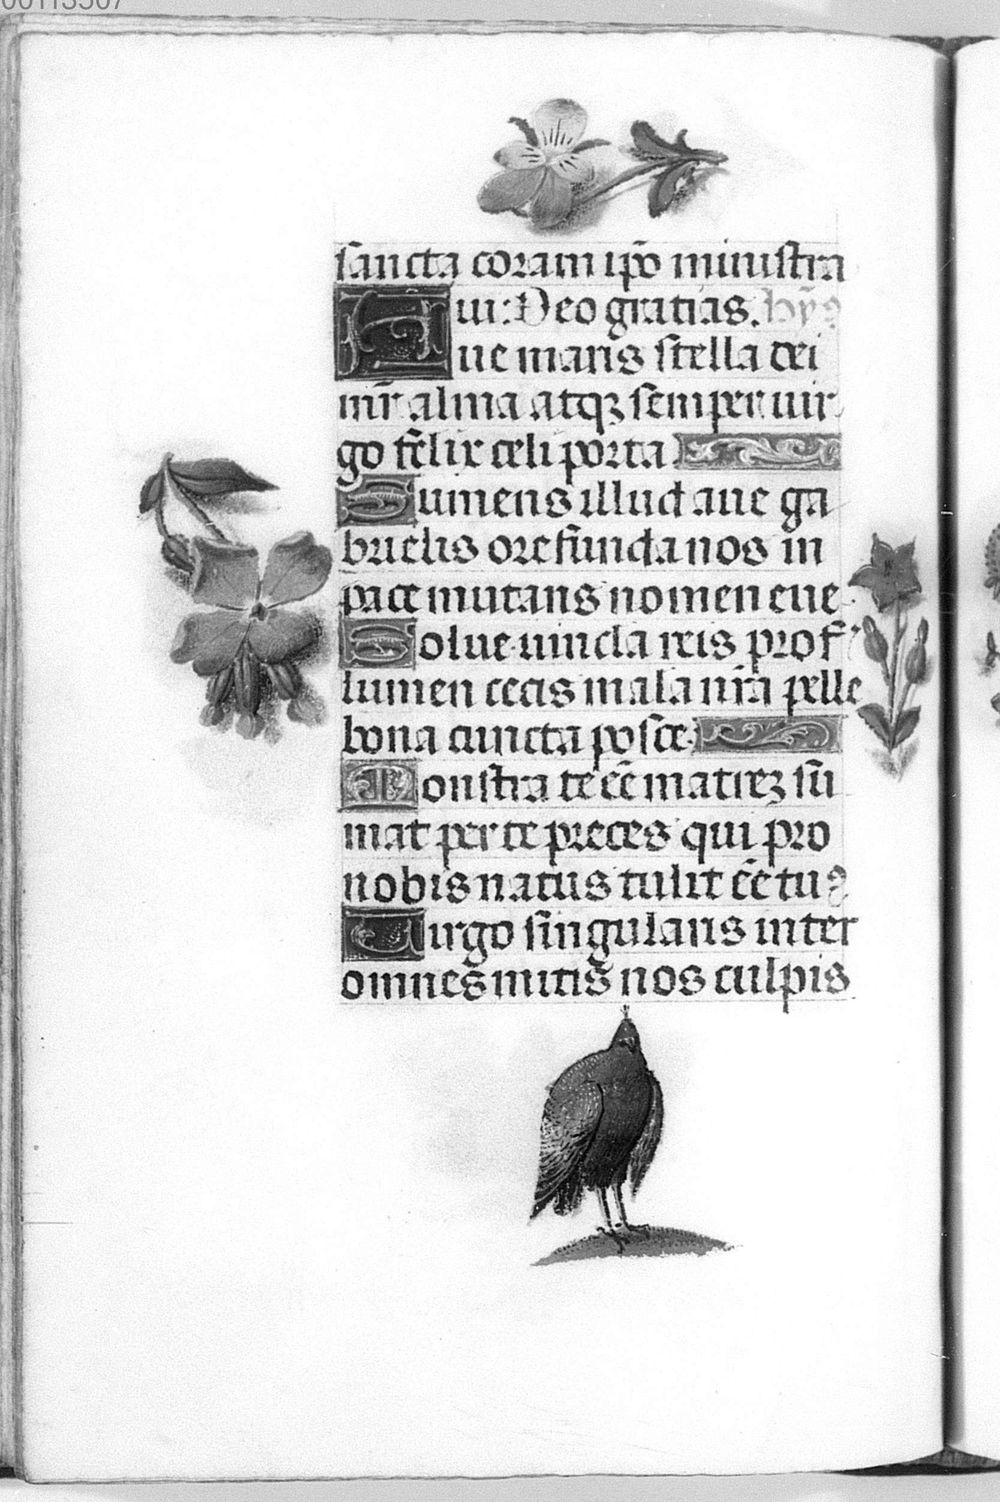 00113507
sancta coram ip̄o ministra
ui: Deo gratias. hy̅9
Aue maris stella dei
mr̄ alma atqꝫ semper uir
go felix celi porta
Sumens illud aue ga
brielis ore funda nos in
pace mutans nomen eue
Solue uincla reis prof'
lumen cecis mala nr̄a pelle
bona cuncta posce
Monstra te eē matreꝫ su
mat per te preces qui pro
nobis natus tulit eē tu9
Uirgo singularis inter
omnes mitis nos culpis